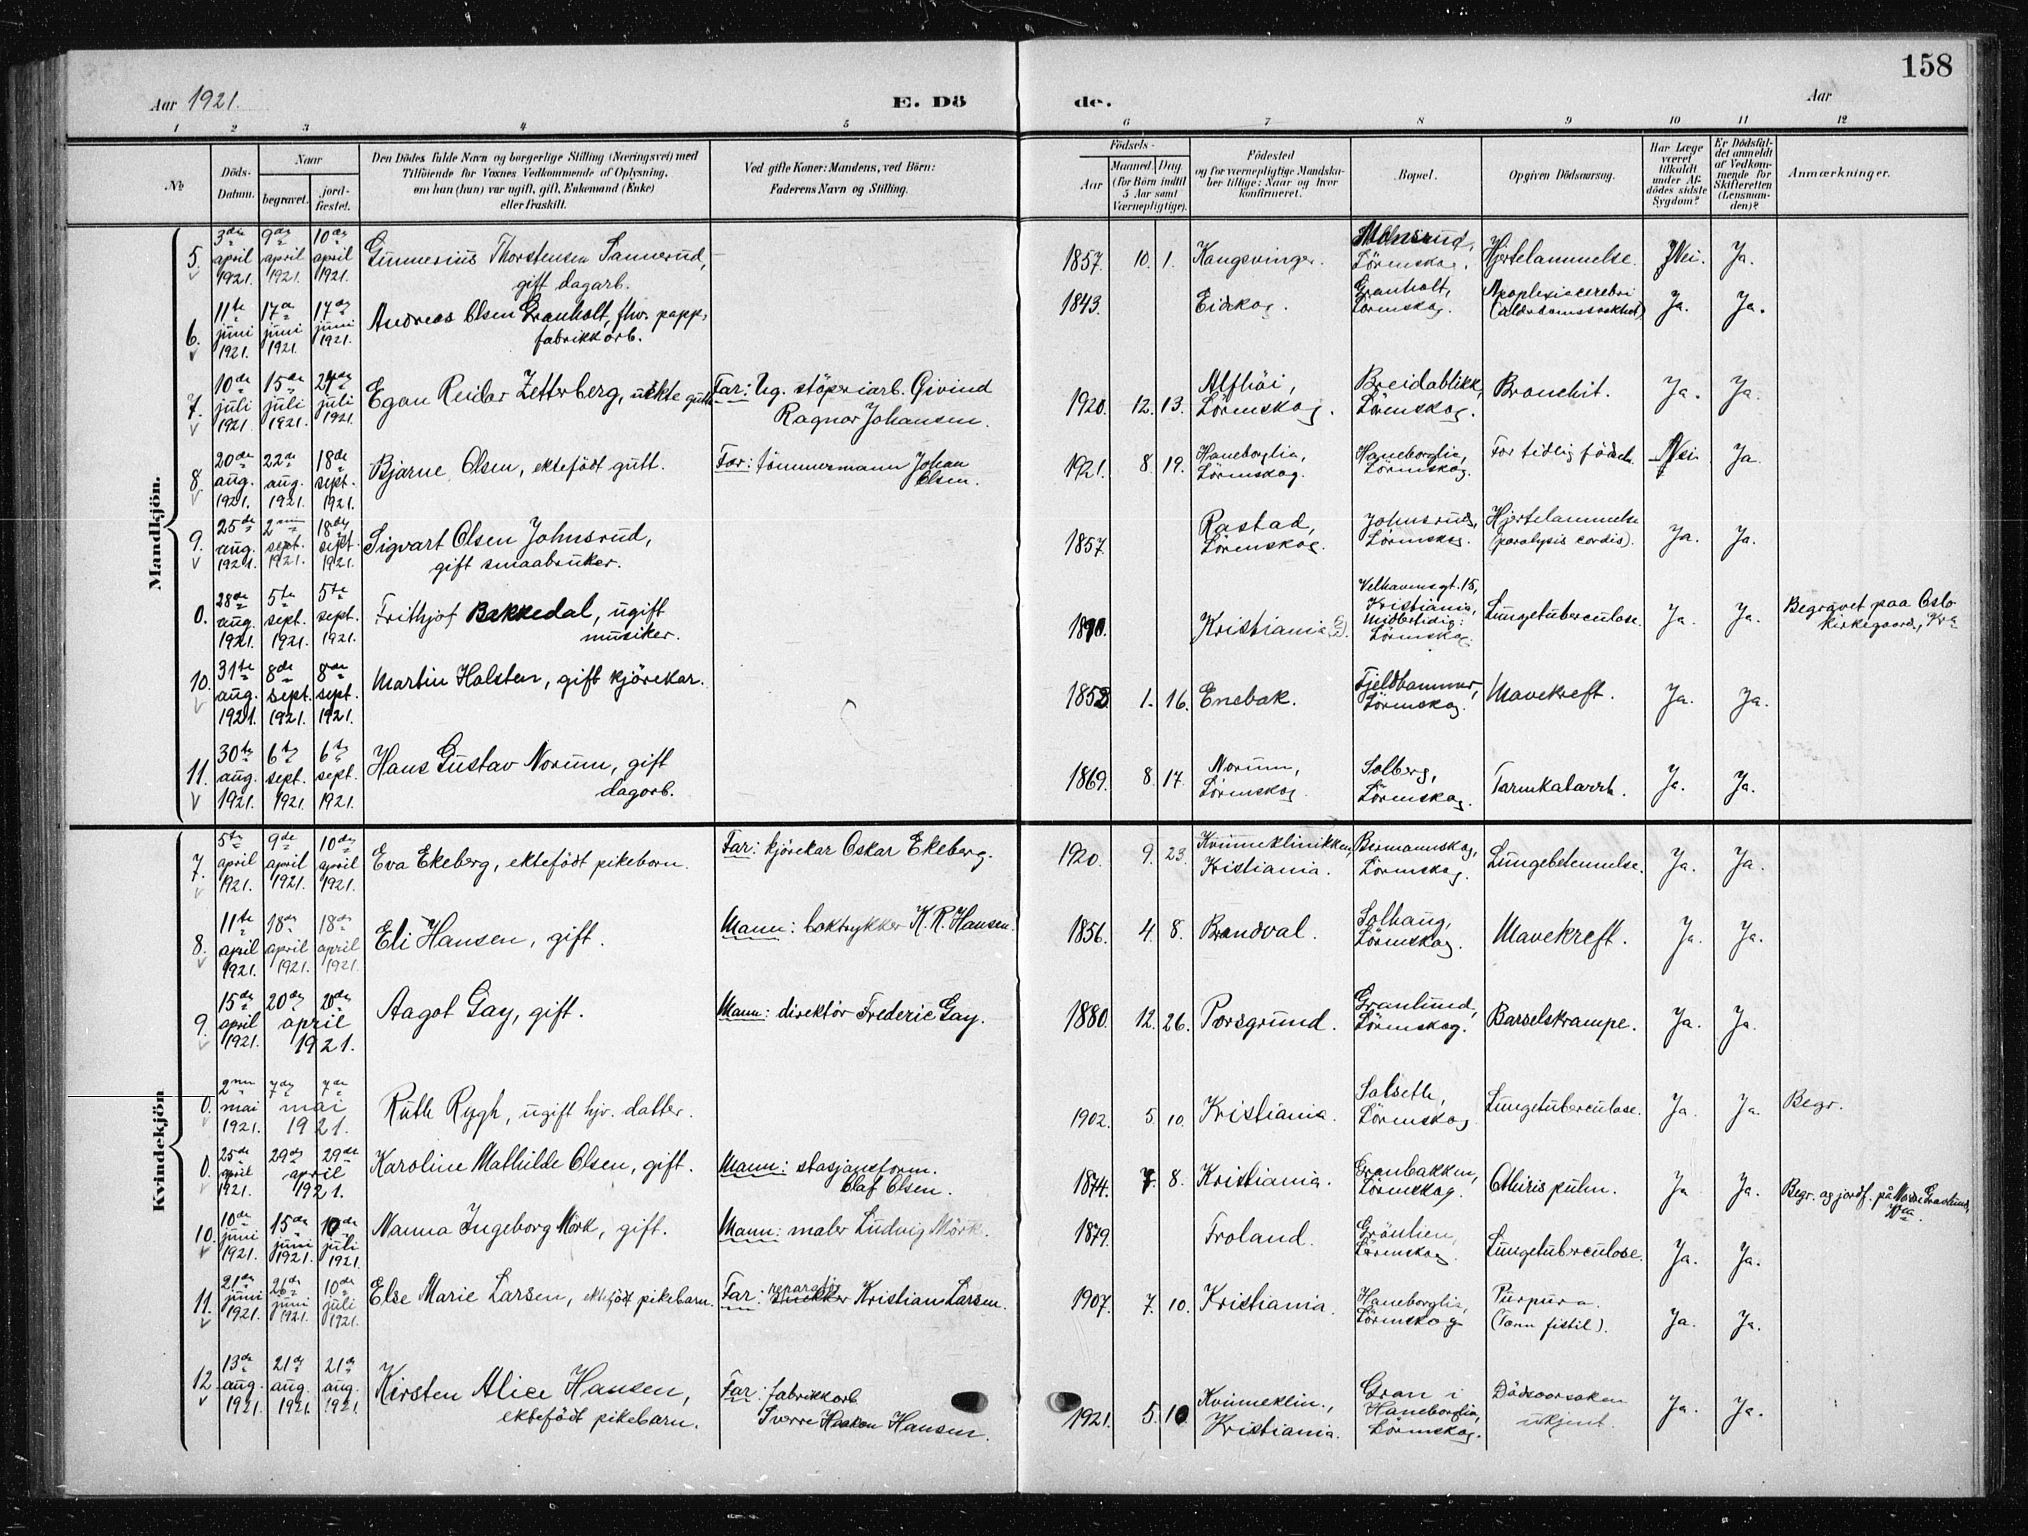 158
Aar 1921.
E. Dö
de.
Aar
1 2 3 4 5 6 7 8 9 10 11 12
№
Döds-Datum.
Naar
begravet.
jord-fæstet.
Den Dödes fulde Navn og borgerlige Stilling (Næringsvei) med
Tilföiende for Voxnes Vedkommende af Oplysning,
om han (hun) var ugift, gift, Enkemand (Enke)
eller fraskilt.
Ved gifte Koner: Mandens, ved Börn:
Faderens Navn og Stilling.
Födsels-
Aar
Maaned
Dag
(for Börn indtil
5 Aar samt
Værnepligtige).
Födested
og for værnepligtige Mandska-
ber tillige: Naar og hvor
konfirmeret.
Bopæl.
Opgiven Dödsaarsag.
Har Læge
været
tilkaldt
under Af-
dödes sidste
Sygdom?
Er Dödsfal-
det anmeldt
af Vedkom-
mende for
Skifteretten
(Lensman-
den)?
Anmærkninger.
Mandkjön.
5. 3die april 1921. 9de april 1921. 10de april 1921. Gunnerius Thorstensen Sannerud, gift dagarb. – 1857. 10. 1. Kongsvinger. Lörenskog. Hjertelammelse. Nei. Ja.
6. 11te juni 1921. 17de juni 1921. 17de juni 1921. Andreas Olsen Granholt, fhv. papp-fabrikkarb. 1843. Eidskog. Granholt, Lörenskog. Apoplexia cerebri Ja. Ja.
7. 10de juli 1921. 15de juli 1921. 24de juli 1921. Egon Reidar Zetterberg, uekte gutt. Far: Ug. stöperiarb. Öivind Ragnar Johansen. 1920. 12. 13. Alfhöi, Lörenskog. Breidablikk, Lörenskog. Bronchit. Ja. Ja.
8. 20de aug. 1921. 22de aug. 1921. 18de sept. 1921. Bjarne Olsen, ektefödt gutt. Far: tömmermann Johan Olsen. 1921. 8. 19. Haneborglia, Lörenskog. Haneborglia, Lörenskog. For tidlig födsel. Nei Ja.
9. 25de aug. 1921. 2nen sept. 1921. 18de sept. 1921. Sigvart Olsen Johnsrud, gift smaabruker. 1857. Rastad, Lörenskog. Johnsrud, Lörenskog. Hjertelammelse (paralysis cordis). Ja. Ja.
0. 28de aug. 1921. 5te sept. 1921. 5te sept. 1921. Frithjof Bakkedal, ugift musiker. 1890. Kristiania (?). Velhavensgt. 15, Kristiania, Midlertidig: Lörenskog Lungetuberculose. Ja. Ja. Begravet paa Oslo kirkegaard, Kra
10. 31te aug. 1921. 8de sept. 1921. 8de sept. 1921. Martin Holsten, gift kjörekar. 1853 1. 16. Enebak. Fjeldhammer, Lörenskog. Mavekreft. Ja. Ja.
11. 30te aug. 1921. 6te sept. 1921. 6te sept. 1921. Hans Gustav Norum, gift dagarb. 1869. 8. 17. Norum, Lörenskog. Solberg, Lörenskog. Tarmkatarrh. Ja. Ja.
Kvindekjön
7. 5te april 1921. 9de april 1921. 10de april 1921. Eva Ekeberg, ektefödt pikebarn. Far: kjörekar Oskar Ekeberg. 1920. 9. 23. Kvinneklinikken, Kristiania. Lörenskog. Lungebetennelse. Ja. Ja.
8. 11te april 1921. 18de april 1921. 18de april 1921. Eli Hansen, gift. Mann: boktrykker K. R. Hansen. 1856. 4. 8. Brandval. Solhaug, Lörenskog. Mavekreft. Ja. Ja.
9. 15de april 1921. 20de 20de april 1921. Aagot Gay, gift. Mann: direktör Frederic Gay. 1880. 12. 26. Porsgrund. Granlund, Lörenskog. Barselskrampe. Ja. Ja.
0. 2nen mai 1921. 7de 7de mai 1921. Ruth Rygh, ugift hjv. datter. 1902. 5. 10. Kristiania. Lörenskog Lungetuberculose. Ja. Ja. Begr.
0. 25de april 1921. 29de 29de april 1921. Karoline Mathilde Olsen, gift. Mann: stasjonsform. Olaf Olsen. 1874. 7. 8. Kristiania. Granbakken, Lörenskog. Phthisis pulm. Ja Ja. Begr. og jordf. på Nordre Gravlund, Kra.
10. 10de juni 1921. 15de juni 1921. 10de juli 1921. Nanna Ingeborg Mörk, gift. Mann: maler Ludvig Mörk. 1879. Froland. Grönlien, Lörenskog Lungetuberculose. Ja. Ja.
11. 21de juni 1921. 26de juni 1921. 10de juli 1921. Else Marie Larsen, ektefödt pikebarn. Far: Kristian Larsen. 1907. 7. 10. Kristiania. Haneborglia, Lörenskog Purpura. (Tarm fistil). Ja. Ja.
12 13de aug. 1921. 21de aug. 1921. 21de aug. 1921. Kirsten Alice Hansen, ektefödt pikebarn. Far: fabrikkarb Sverre Haakon Hansen. 1921. 5. 10 Kvinneklin., Kristiania. Gran i Haneborglia, Lörenskog. Dödsaarsaken ukjent. Ja. Ja.